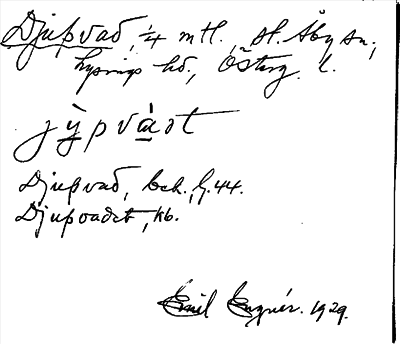 Djupvad, 1/4 mtl., St. Åby sn,
Lysings hd., Österg. l.
jy̱pvà̱t
Djupvad, bck., G. 44.
Djupvadet, kb.
Emil Engnér. 1929.